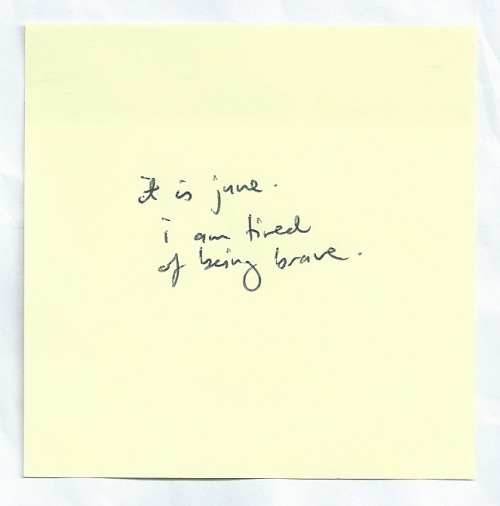 it is june.
i am tired
of being brave.